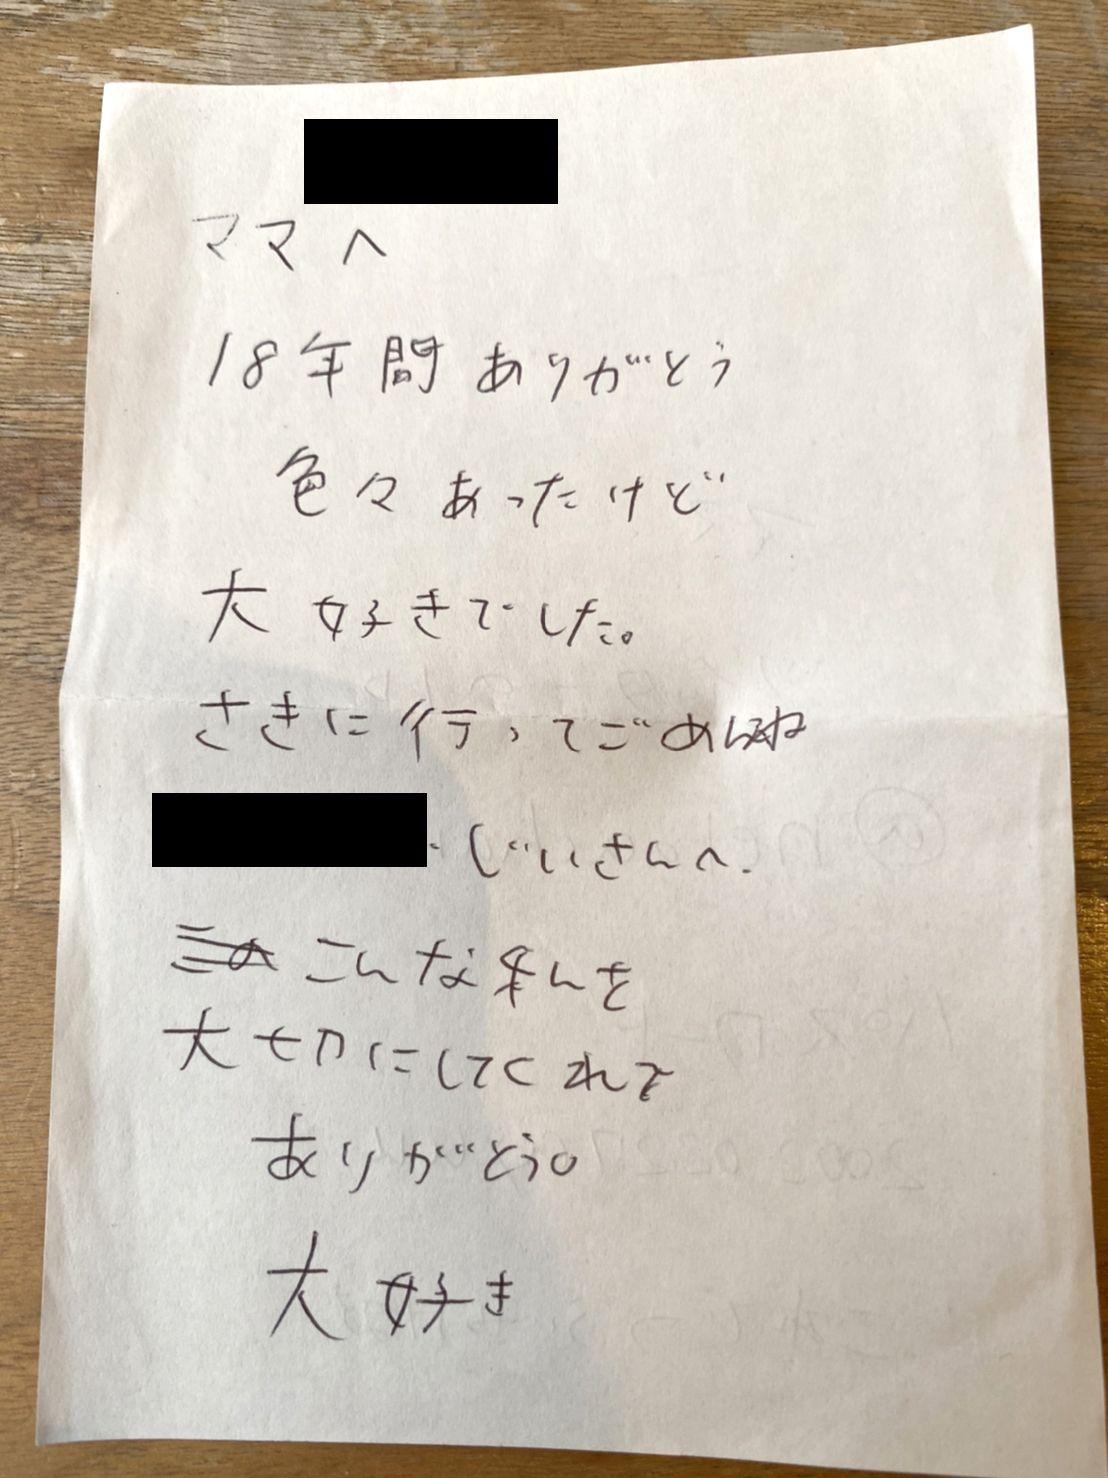 ママへ
18年間ありがとう
色々あったけど
大好きでした。
さきに行ってごめんね
・じいさんへ.
こんな
大切にしてくれて
ありがとう。
大好き